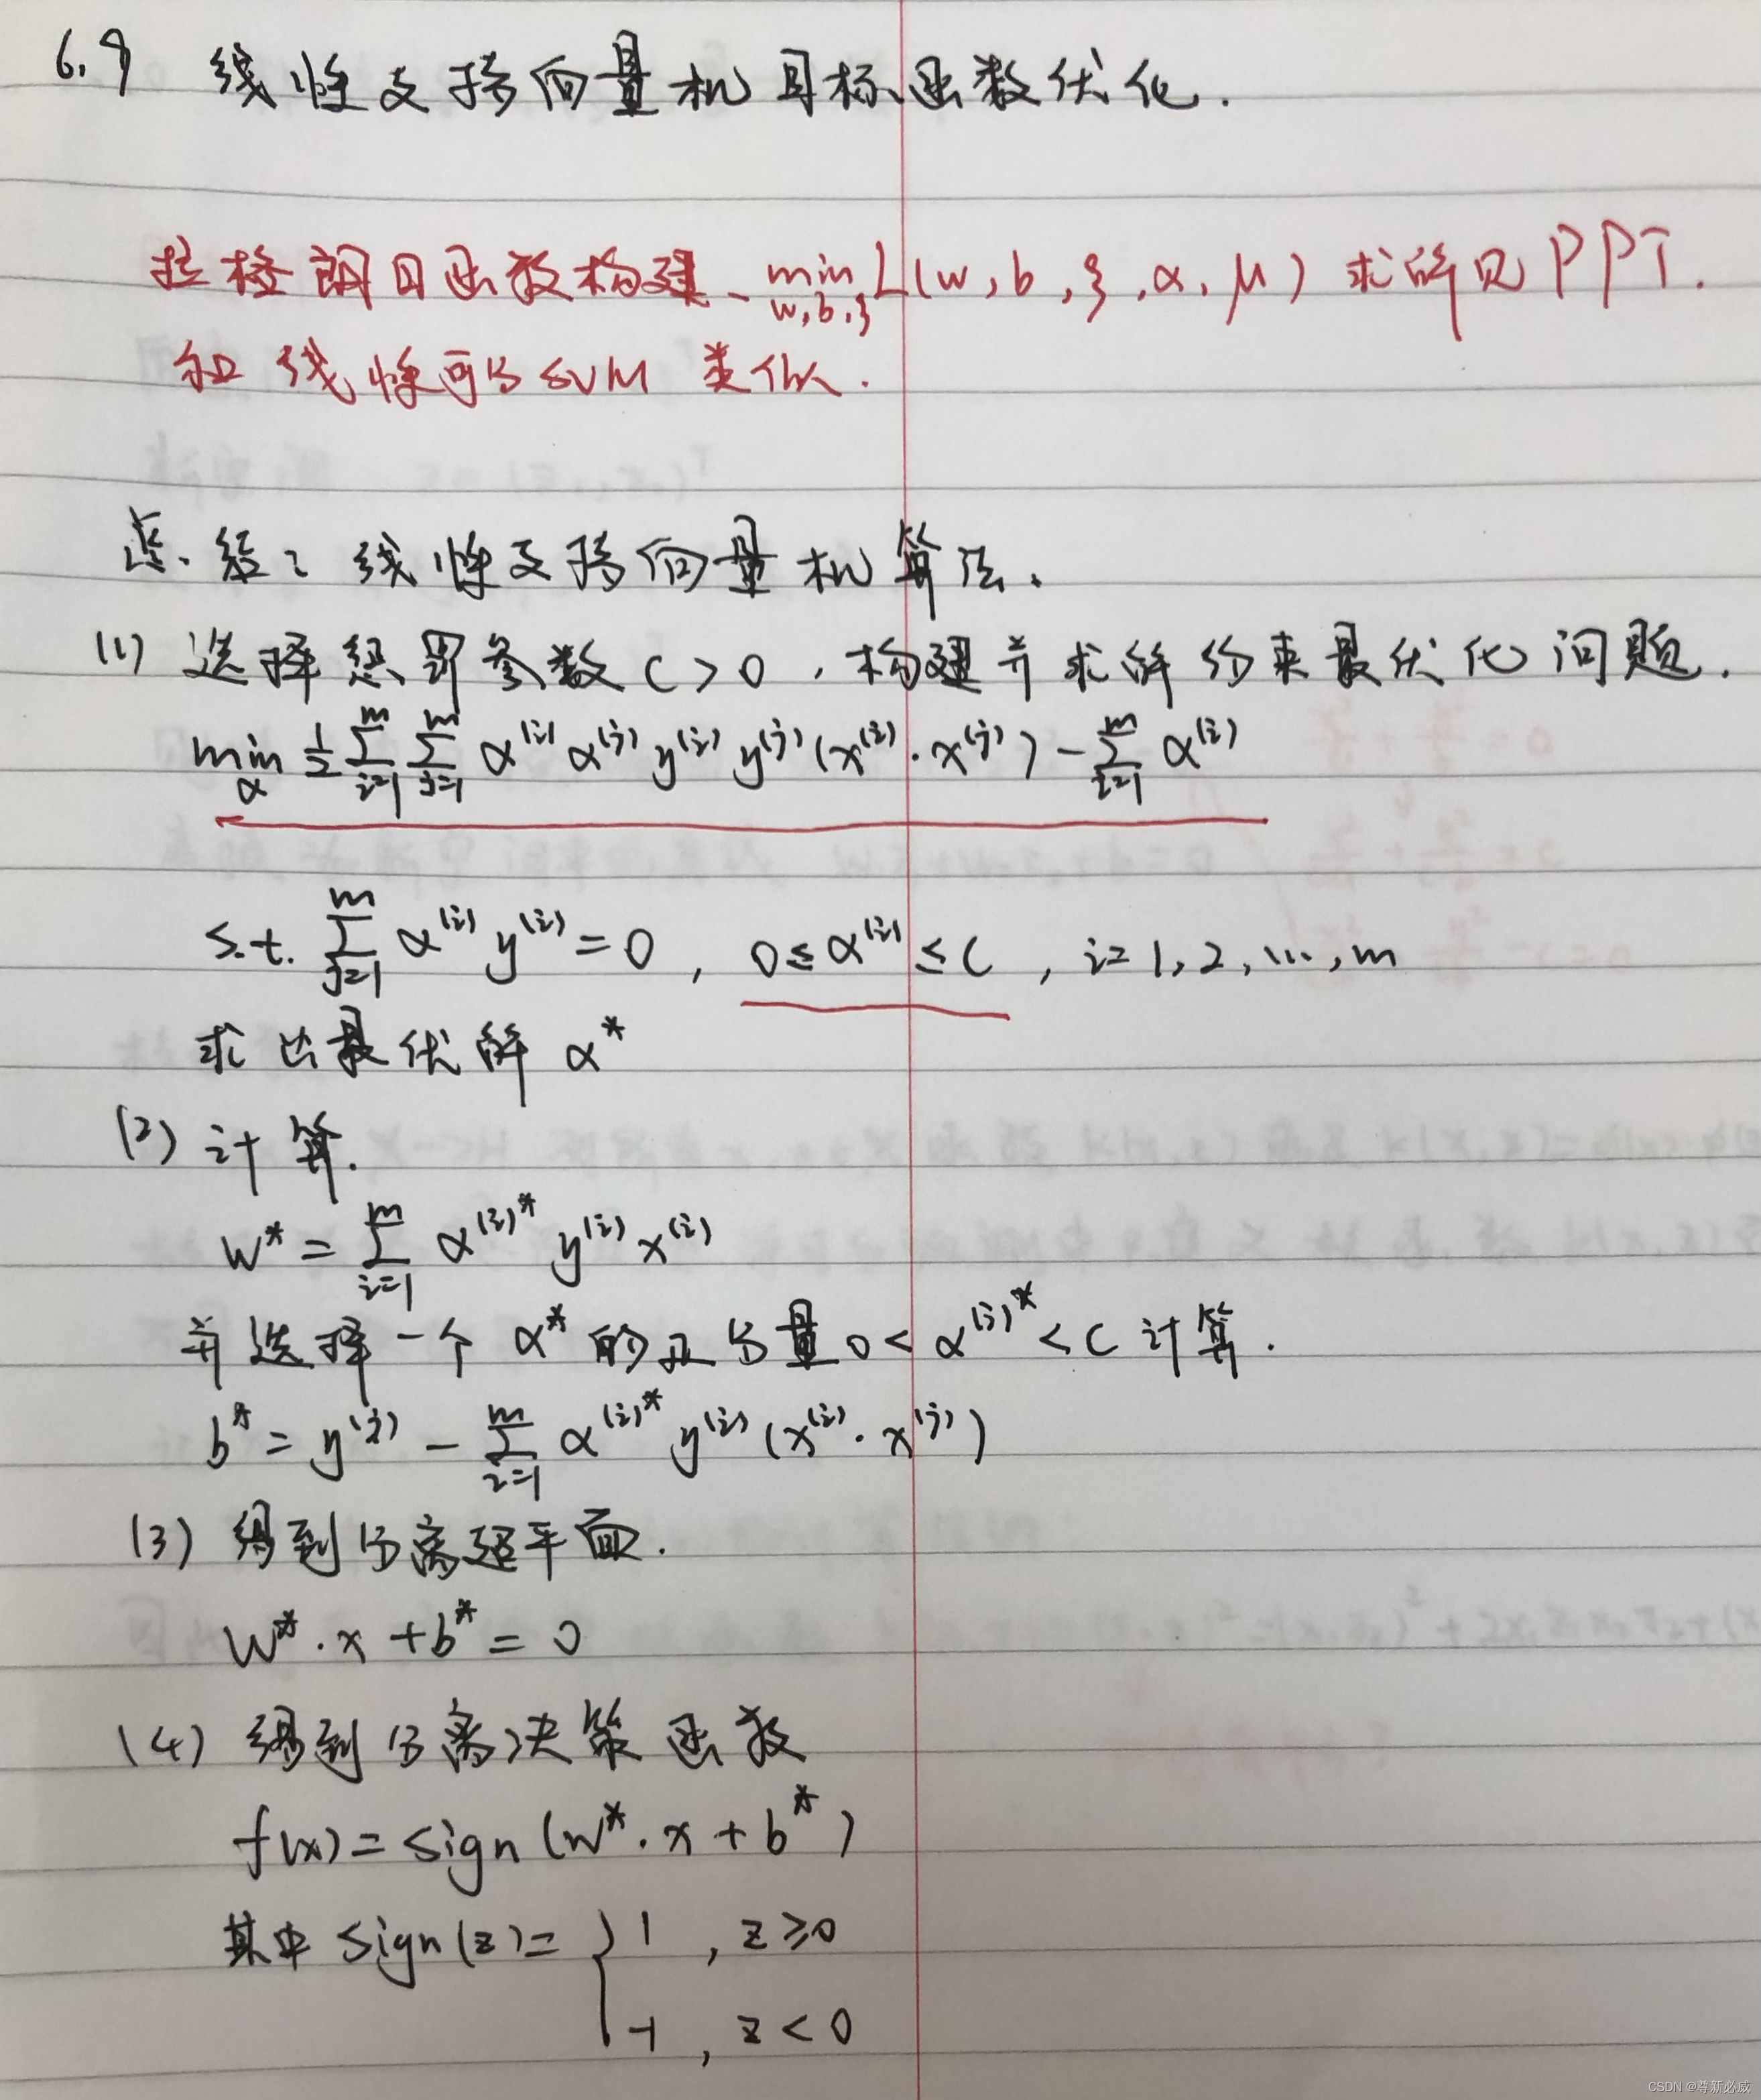 6.9 线性支持向量机目标函数优化.
拉格朗日函数构建、min L(w,b,ξ,α,μ) 求解见PPT.
w,b,ξ
和线性可分SVM类似.
总结:线性支持向量机算法.
(1) 选择惩罚参数C>0,构建并求解约束最优化问题.
min_α 1/2 Σ_{i=1}^{m} Σ_{j=1}^{m} α^(i) α^(j) y^(i) y^(j) (x^(i)·x^(j)) - Σ_{i=1}^{m} α^(i)
s.t. Σ_{j=1}^{m} α^(i) y^(i) = 0, 0≤α^(i)≤C, i=1,2,...,m
求出最优解 α*
(2) 计算.
w* = Σ_{i=1}^{m} α^(i)* y^(i) x^(i)
并选择一个 α* 的正分量 0<α^(j)*<C 计算.
b* = y^(j) - Σ_{i=1}^{m} α^(i)* y^(i) (x^(i)·x^(j))
(3) 得到分离超平面.
w*·x+b*=0
(4) 得到分离决策函数
f(x)=sign(w*·x+b*)
其中 sign(z)= { 1, z≥0
-1, z<0
CSDN @尊新必威